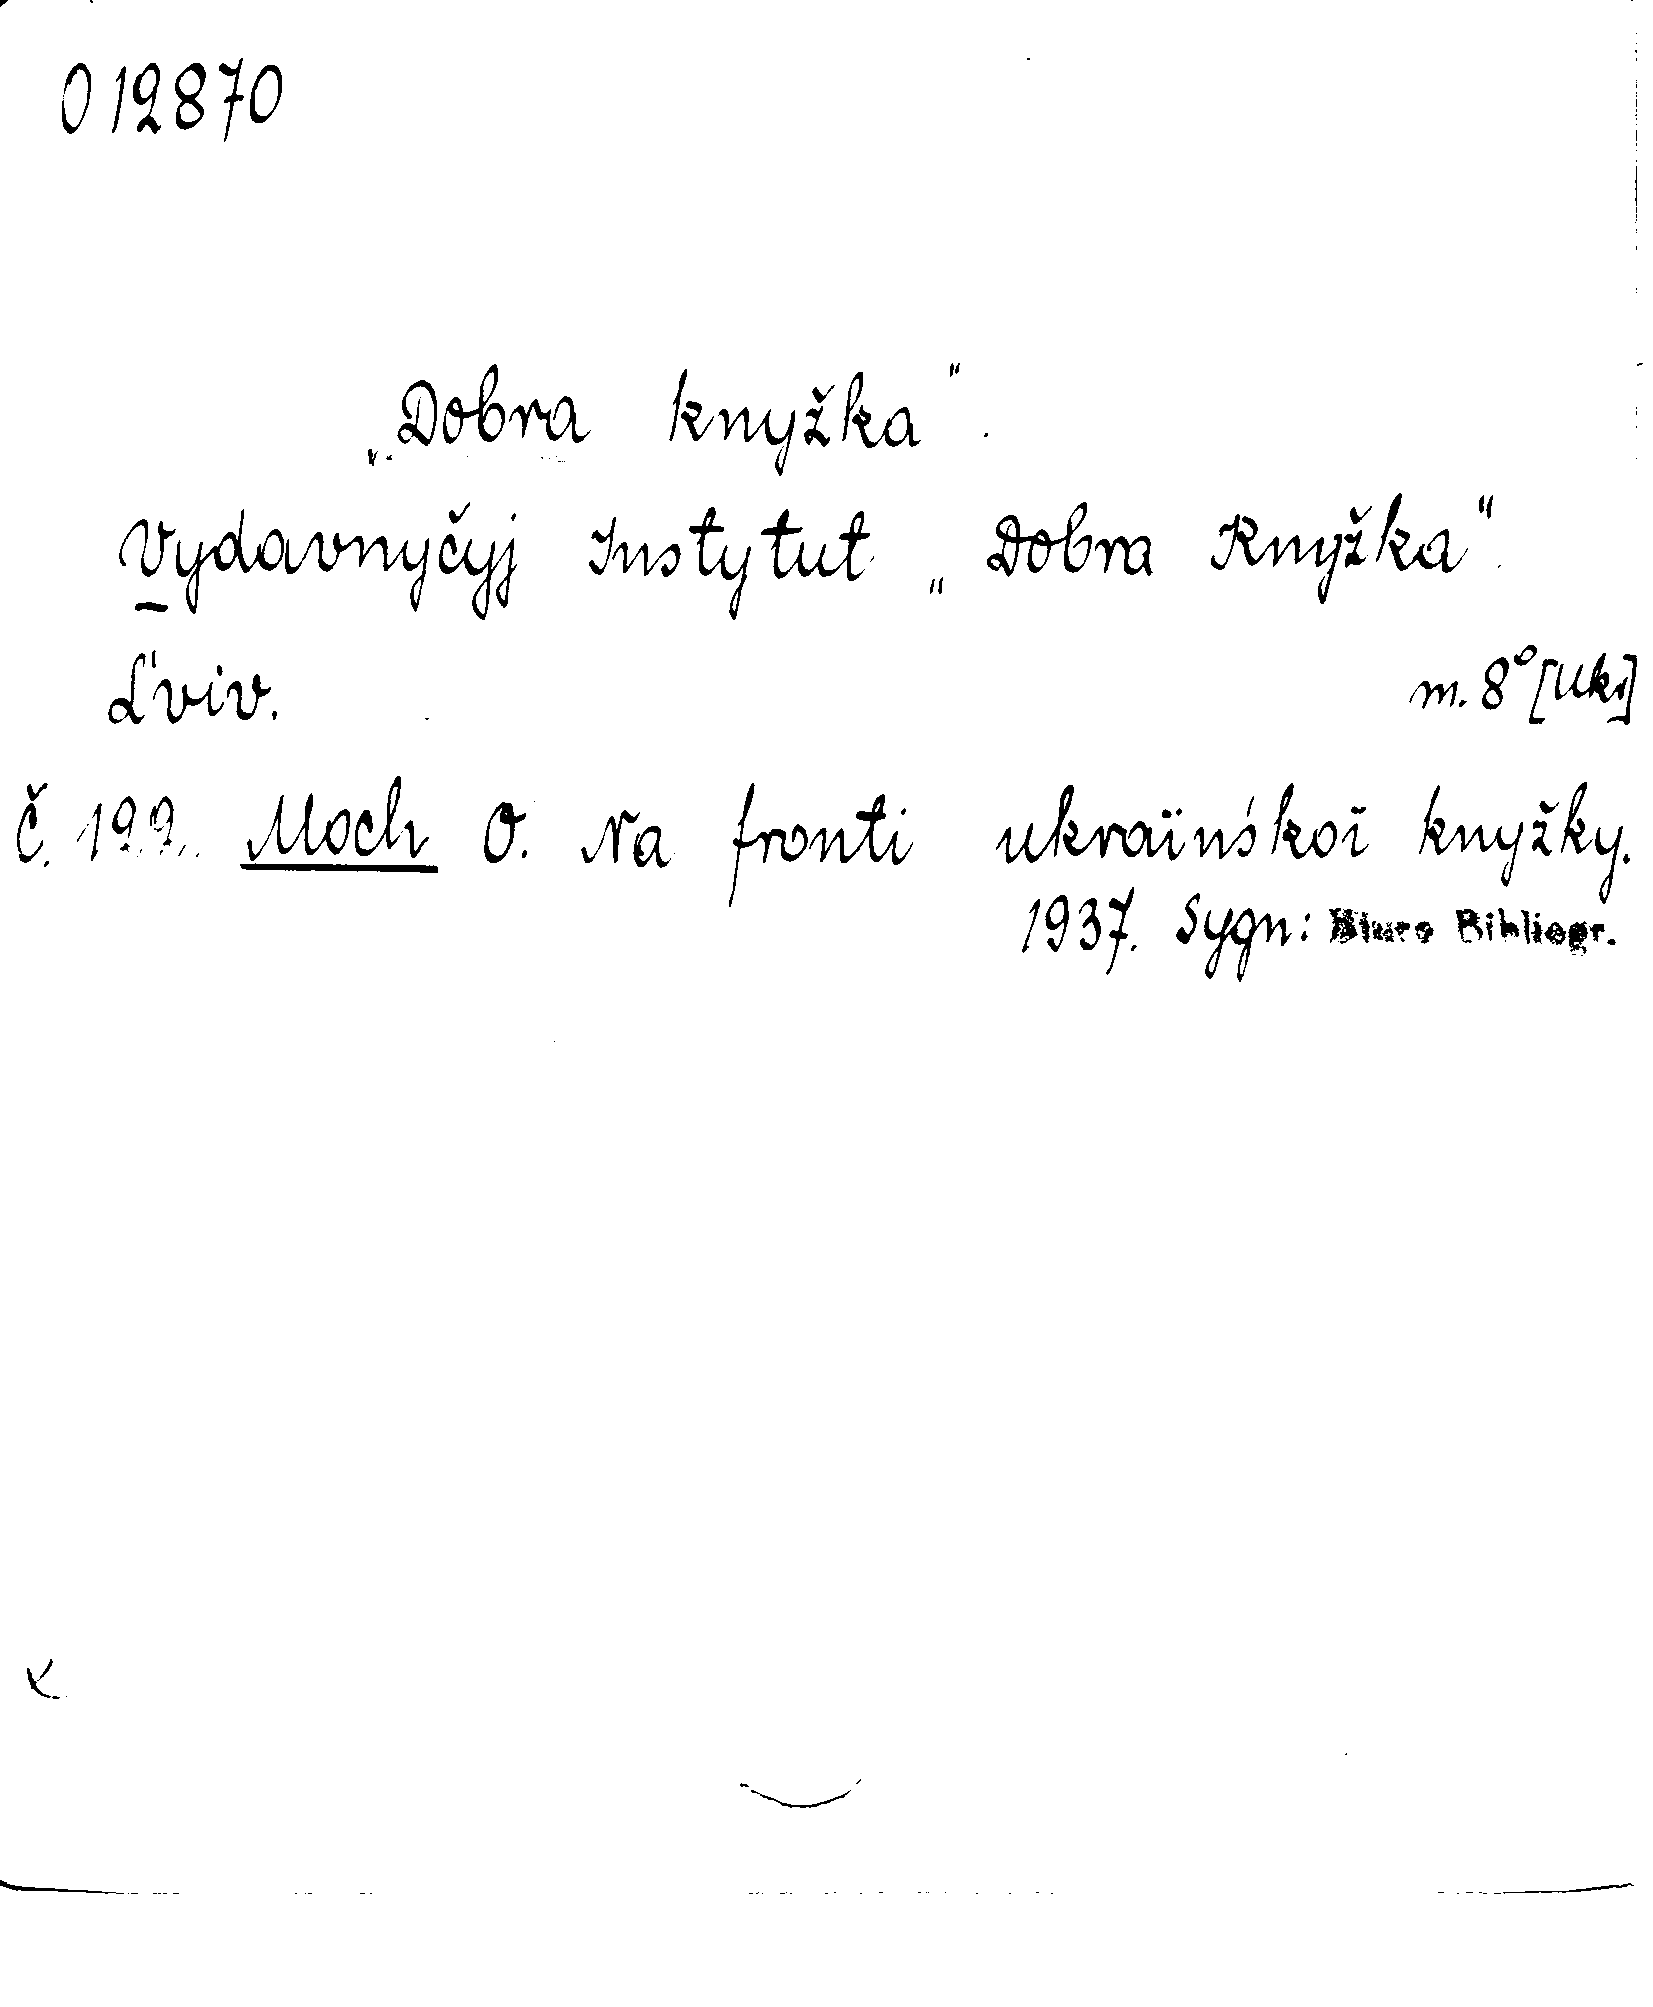 012870
„Dobra knyžka".
Vydavnyčyj Instytut „Dobra Knyžka".
L'viv. m. 8° [Ukr]
Č. 122. Moch O. Na fronti ukraïnśkoï knyžky.
1937. Sygn: Biuro Bibliogr.